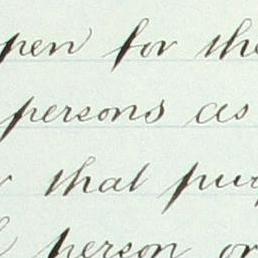 pen for the
persons as
that pur
person or